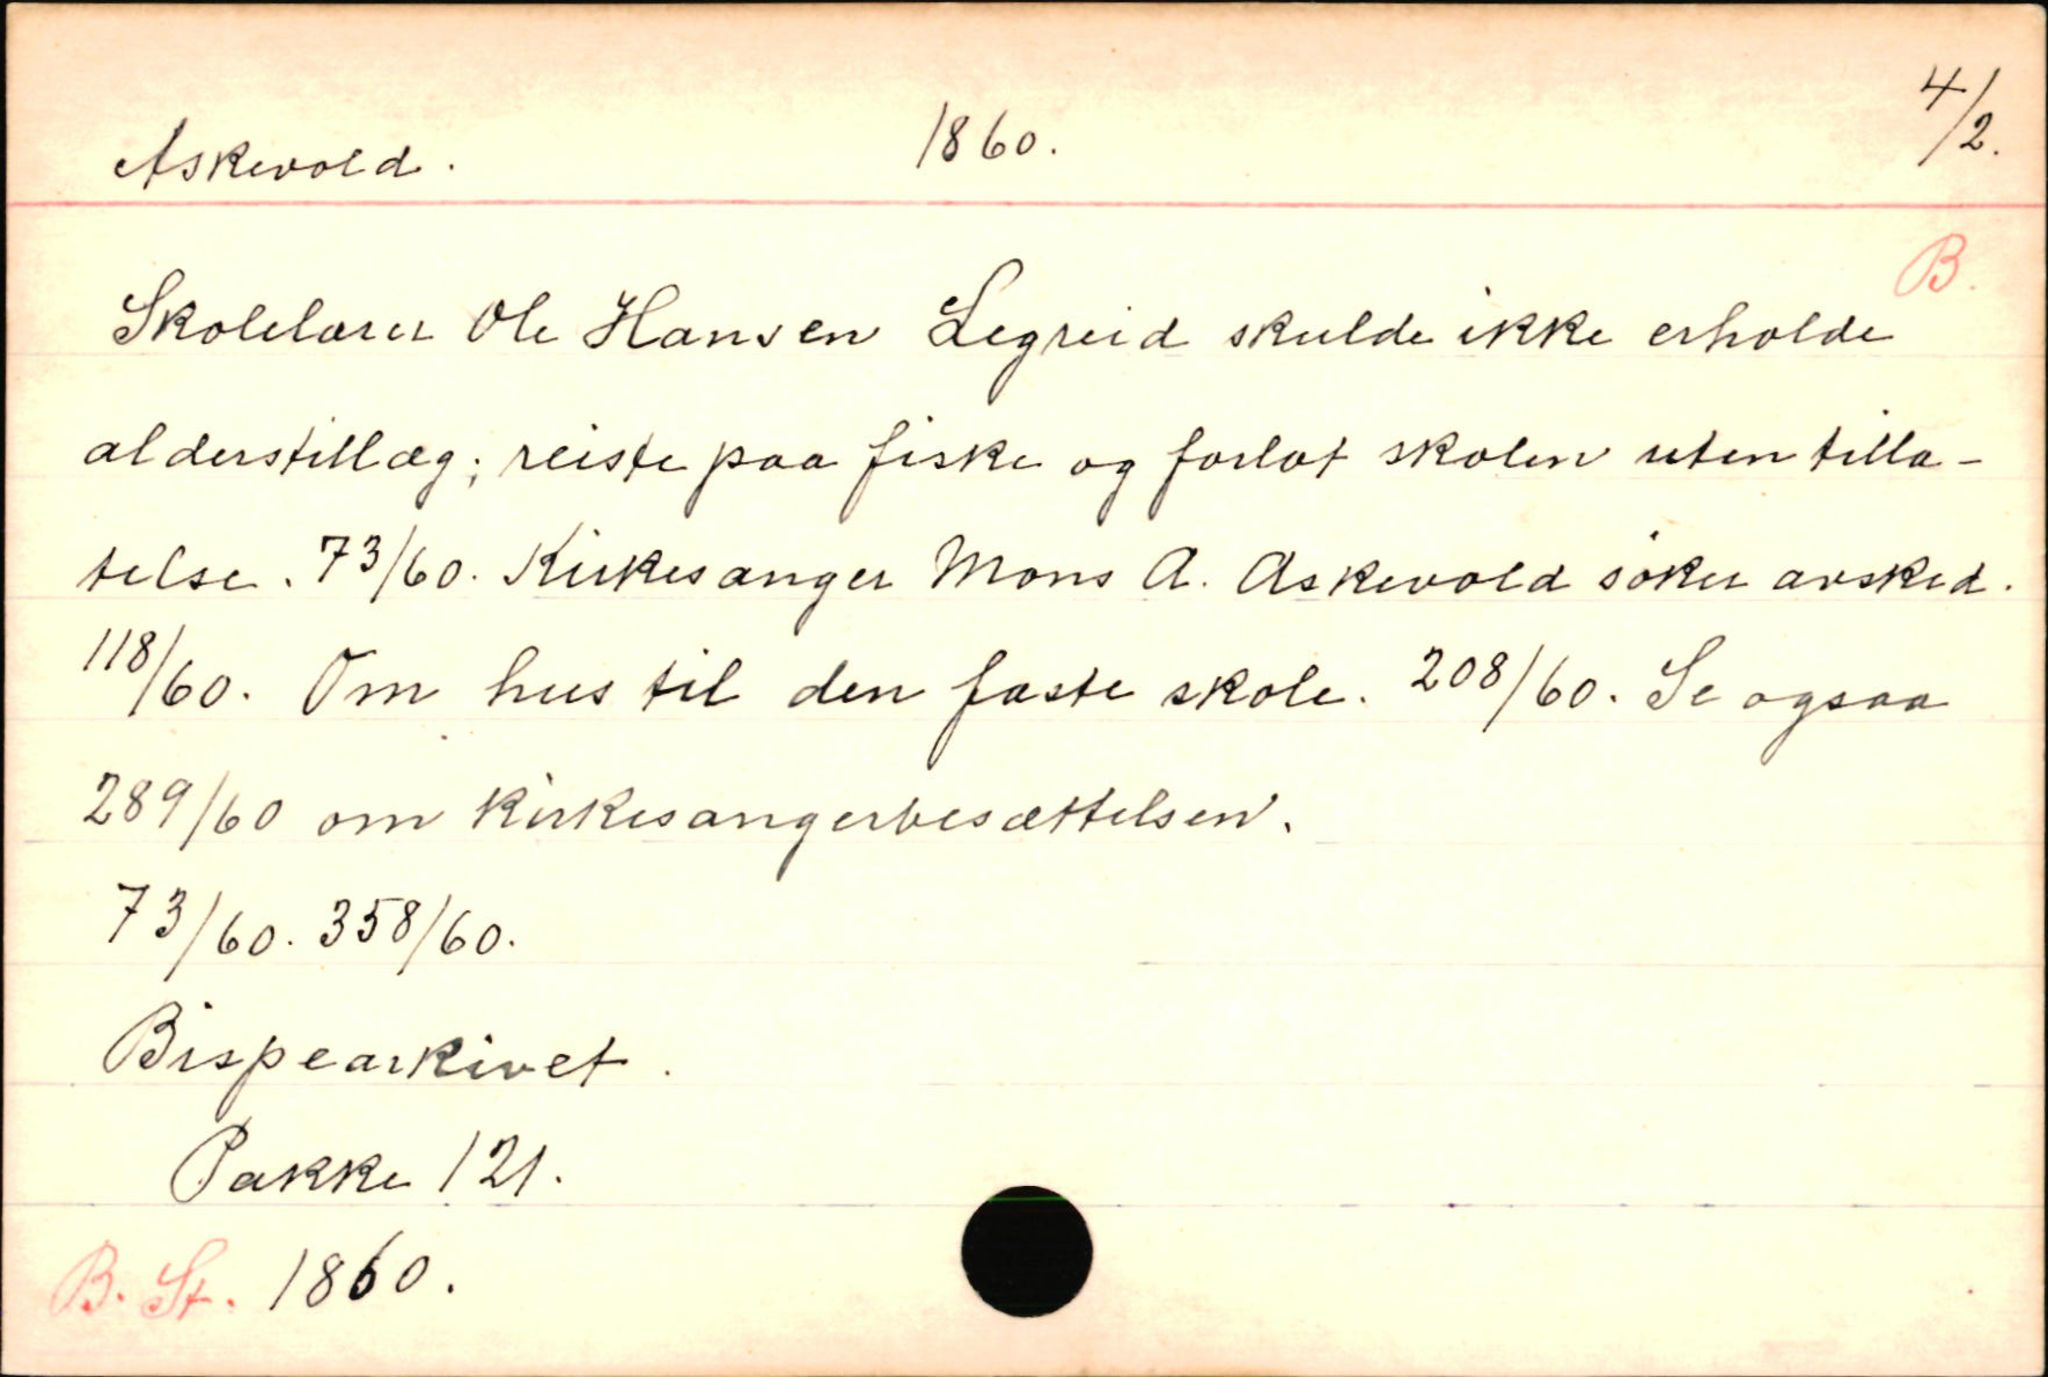 Askevold. 1860. 4/2.
B.
Skolelærer Ole Hansen Legreid skulde ikke erholde
alderstillæg; reiste paa fiske og forlot skolen uten tilla-
telse. 73/60. Kirkesanger Mons A. Askevold söker avsked.
118/60. Om hus til den faste skole. 208/60. Se ogsaa
289/60 om kirkesangerbesættelsen.
73/60. 358/60.
Bispearkivet.
Pakke 121.
B. St. 1860.